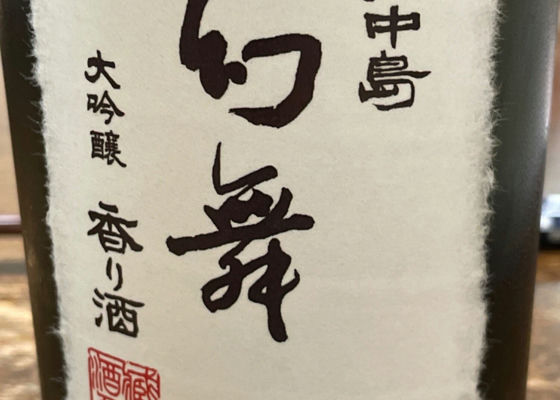 中島
幻舞
大吟醸 香り酒